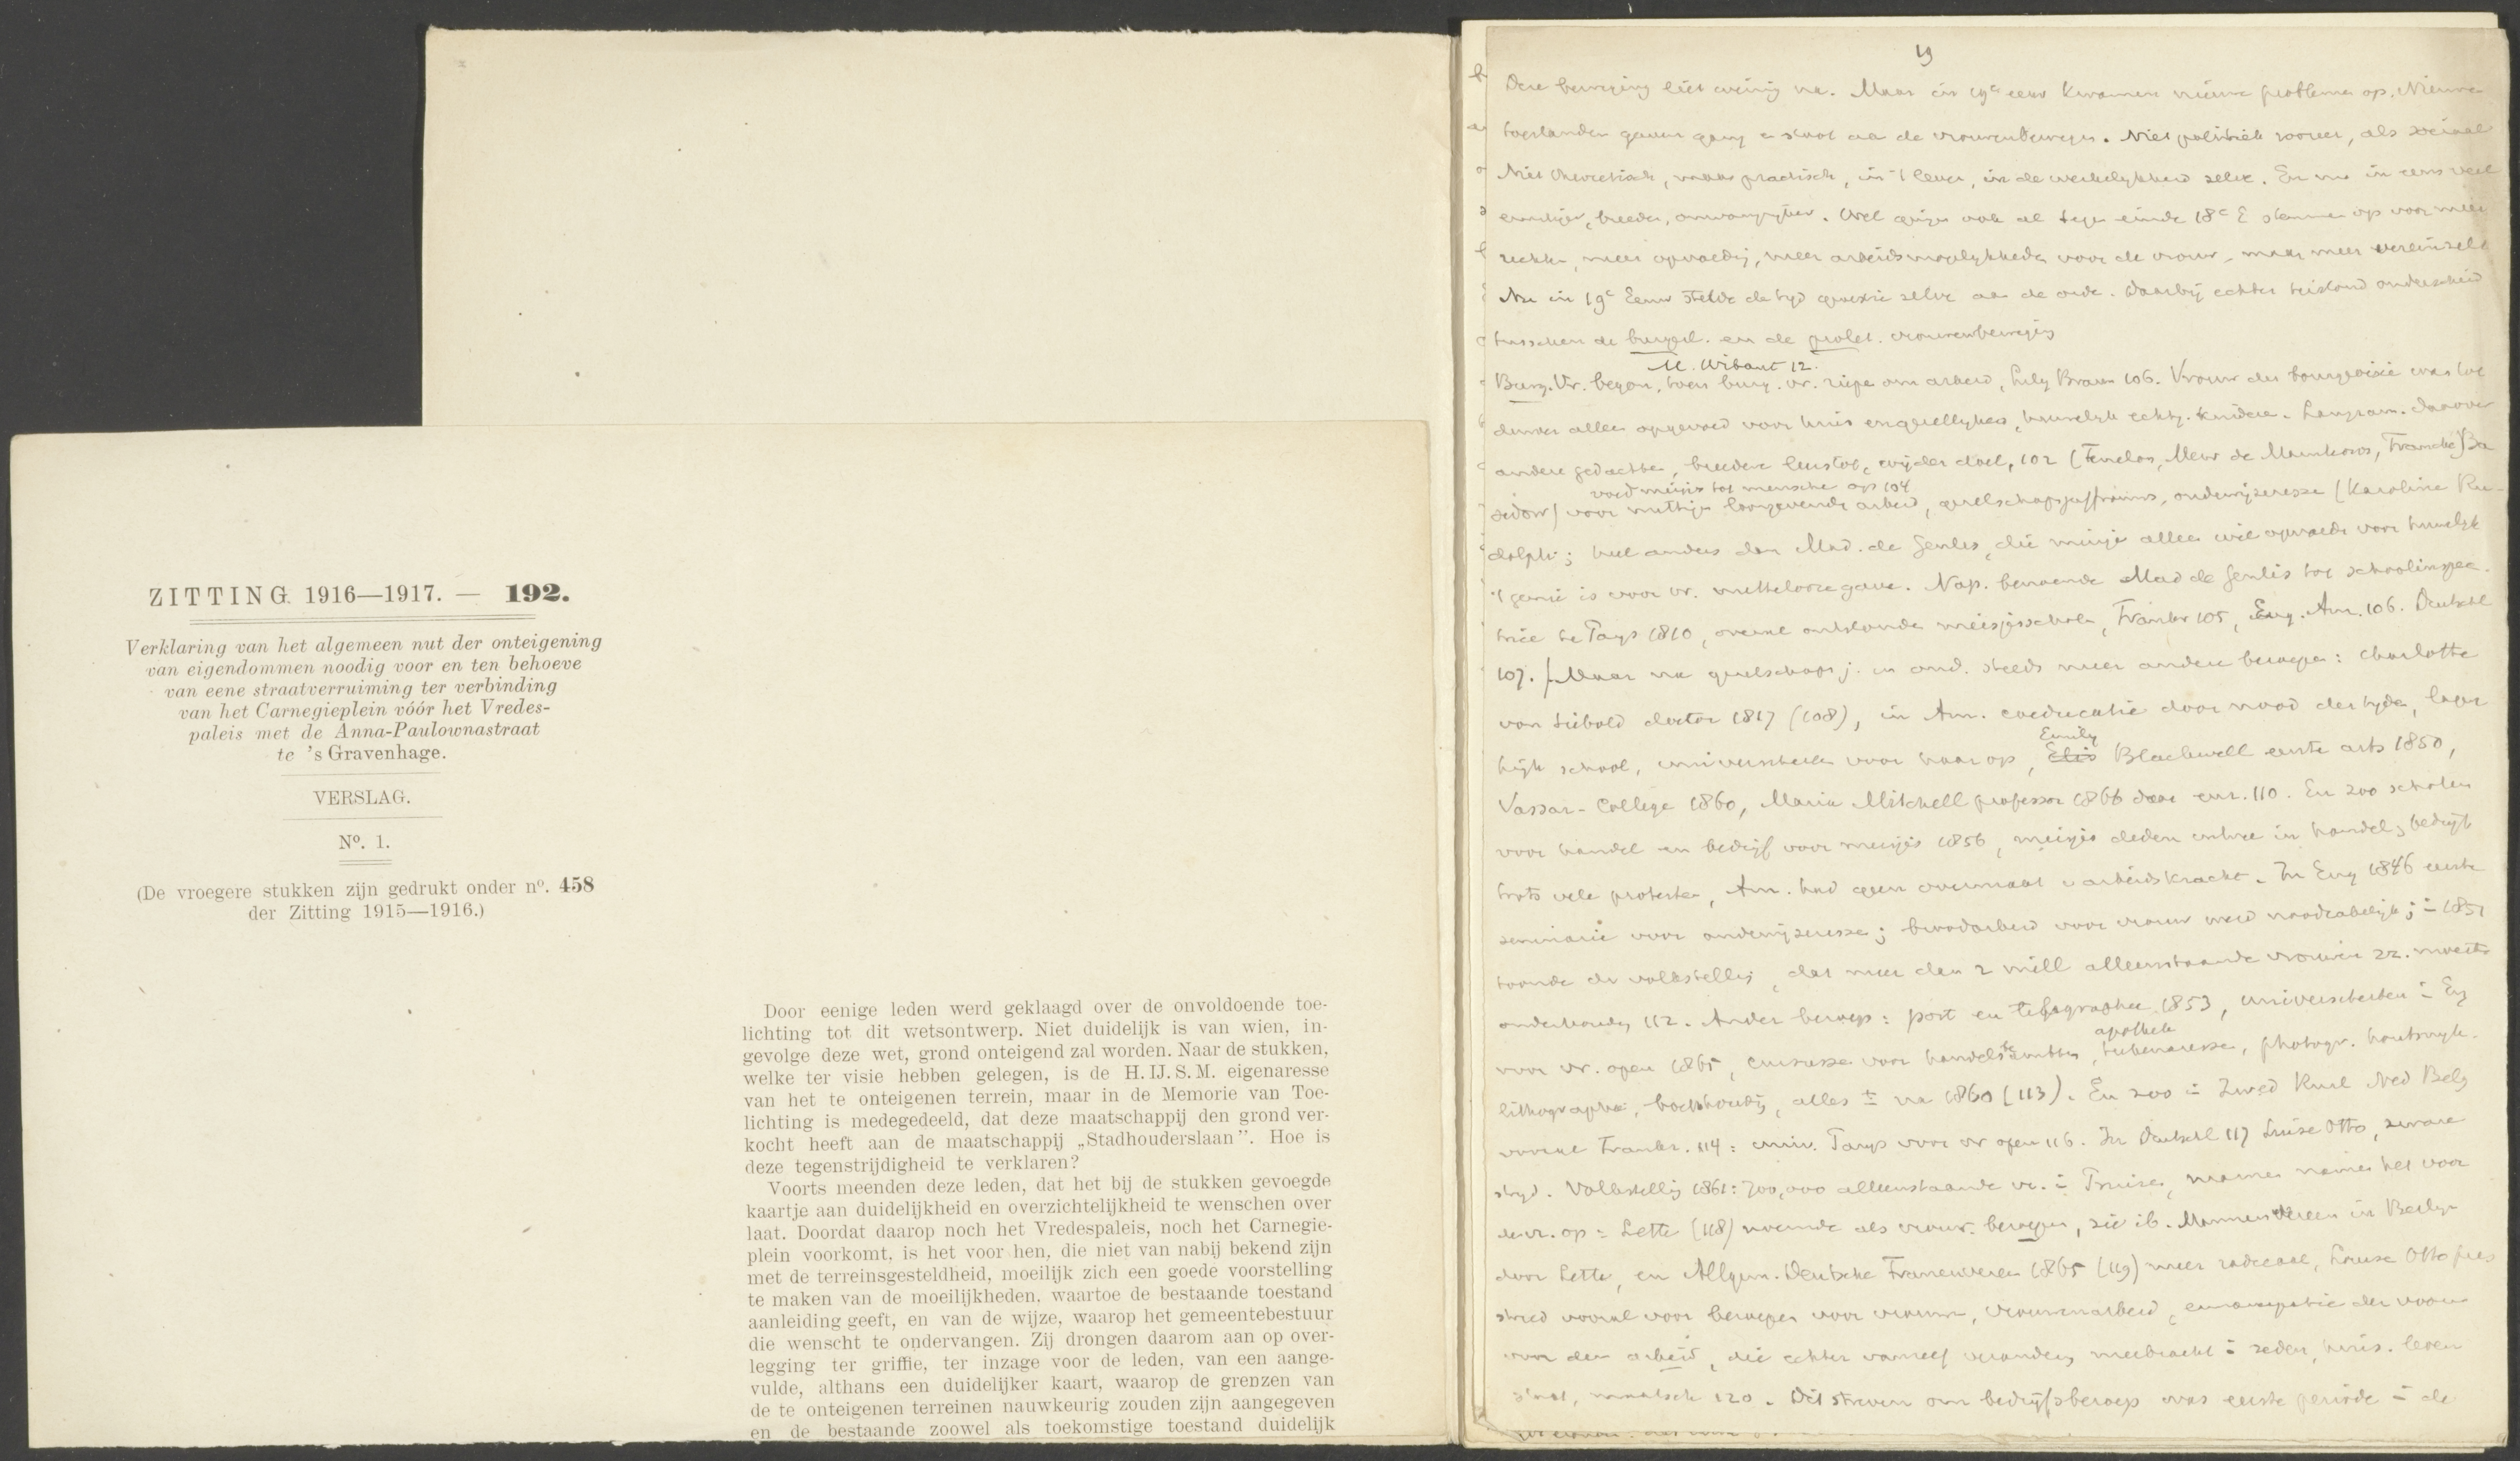 ZITTING 1916—1917. — 192.
Verklaring van het algemeen nut der onteigening
van eigendommen noodig voor en ten behoeve
van eene straatverruiming ter verbinding
van het Carnegieplein vóór het Vredes-
paleis met de Anna-Paulownastraat
te 's Gravenhage.
VERSLAG.
Nº. 1.
(De vroegere stukken zijn gedrukt onder nº. 458
der Zitting 1915—1916.)
Door eenige leden werd geklaagd over de onvoldoende toe-
lichting tot dit wetsontwerp. Niet duidelijk is van wien, in-
gevolge deze wet, grond onteigend zal worden. Naar de stukken,
welke ter visie hebben gelegen, is de H. IJ. S. M. eigenaresse
van het te onteigenen terrein, maar in de Memorie van Toe-
lichting is medegedeeld, dat deze maatschappij den grond ver-
kocht heeft aan de maatschappij „Stadhouderslaan”. Hoe is
deze tegenstrijdigheid te verklaren?
Voorts meenden deze leden, dat het bij de stukken gevoegde
kaartje aan duidelijkheid en overzichtelijkheid te wenschen over
laat. Doordat daarop noch het Vredespaleis, noch het Carnegie-
plein voorkomt, is het voor hen, die niet van nabij bekend zijn
met de terreinsgesteldheid, moeilijk zich een goede voorstelling
te maken van de moeilijkheden, waartoe de bestaande toestand
aanleiding geeft, en van de wijze, waarop het gemeentebestuur
die wenscht te ondervangen. Zij drongen daarom aan op over-
legging ter griffie, ter inzage voor de leden, van een aange-
vulde, althans een duidelijker kaart, waarop de grenzen van
de te onteigenen terreinen nauwkeurig zouden zijn aangegeven
en de bestaande zoowel als toekomstige toestand duidelijk
19
Deze beweging liet weinig na. Maar in 19e eeuw kwamen nieuwe problemen op. Nieuwe
toestanden gaven gang e stoot aa de vrouwenbewegen. Niet politiek zoozeer, als sociaal
Niet theoretisch, maar practisch, in 't leven, in de werkelykheid zelve. En nu in eens veel
ernstiger, breeder, omvangryker. Wel gingen ook al tegen einde 18e E stemmen op voor meer
rechten, meer opvoeding, meer arbeidsmogelykheden voor de vrouw, maar meer vereinzelt
Nu in 19e Eeuw stelde de tyd quaestie zelve aa de orde. Daarbij echter bestond onderscheid
tusschen de burgerl. en de prolet. vrouwenbeweging
M. Wibaut 12.
Burg. Vr. begon, toen burg. vr. riepen om arbeid, Lily Braun 106. Vrouw der bourgeoisie was tot
dusver alleen opgevoed voor huis en gezelligheid, huwelyk echtg. kinderen. Langzam. daarover
andere gedachten, breedere leerstof, wijder doel, 102 (Fenelon, Mevr de Maintenon, Francke) Ba
voed meisjes tot menschen op 104
sedow) voor nuttige loongevende arbeid, gezelschapsjuffrouws, onderwijzeressen (Karoline Ru-
dolphi; heel anders dan Mad. de Genlis, die meisjes alleen wil opvoeden voor huwelyk
't genie is voor vr. nuttelooze gave. Nap. benoemde Mad de Genlis tot schoolinspec.
trice te Parys 1810, overal ontstonden meisjesscholen, Frankr 105, Eng. Am. 106. Deutschl
107. Maar na gezelschapsj. en ond. steeds meer andere beroepen: Charlotte
von Siebold doctor 1817 (108), in Am. coeducatie door nood der tyden, lager
Emily
hijk school, universiteiten voor haar op, Elis Blackwell eerste arts 1850,
Vassar-College 1860, Maria Mitchell professor 1866 daar eur. 110. En zoo scholen
voor handel en bedrijf voor meisjes 1856, meisjes deden intree in handel, bedrijf
trots vele protesten, Am. had geen overmaat v arbeidskracht. In Eng 1846 eerste
seminarie voor onderwijzeressen; broodarbeid voor vrouw werd noodzakelijk; 1851
toonde de volkstelling, dat meer dan 2 mill alleenstaande vrouwen zz. moesten
onderhouden 112. Ander beroep: post en telegraphen 1853, universiteiten Eng
apothek
voor vr. open 1865, cursussen voor handels, photogr. houtsnyk.
lithographie, boekhouding, alles ± na 1860 (113). En zoo Zwed Rusl Ned Belg
vooral Frankr. 114: univ. Parys voor vr open 116. In Deutschl 117 Luise Otto, zware
stryd. Volkstelling 1861: 700,000 alleenstaande vr. Pruisen, mannen namen het voor
de vr. op: Lette (118) noemde als vrouw. beroepen, zie ib. Mannenverein in Berlyn
door Lette, en Allgem. Deutsche Frauenverein 1865 (119) meer radicaal, Louise Otto pres
streed vooral voor beroepen voor vrouwen, vrouwenarbeid, emancipatie der vrouw
voor den arbeid, die echter vanzelf verandering meebracht zeden, huis. leven
staat, maatsch 120. Dit streven om bedrijfsberoep was eerste periode de